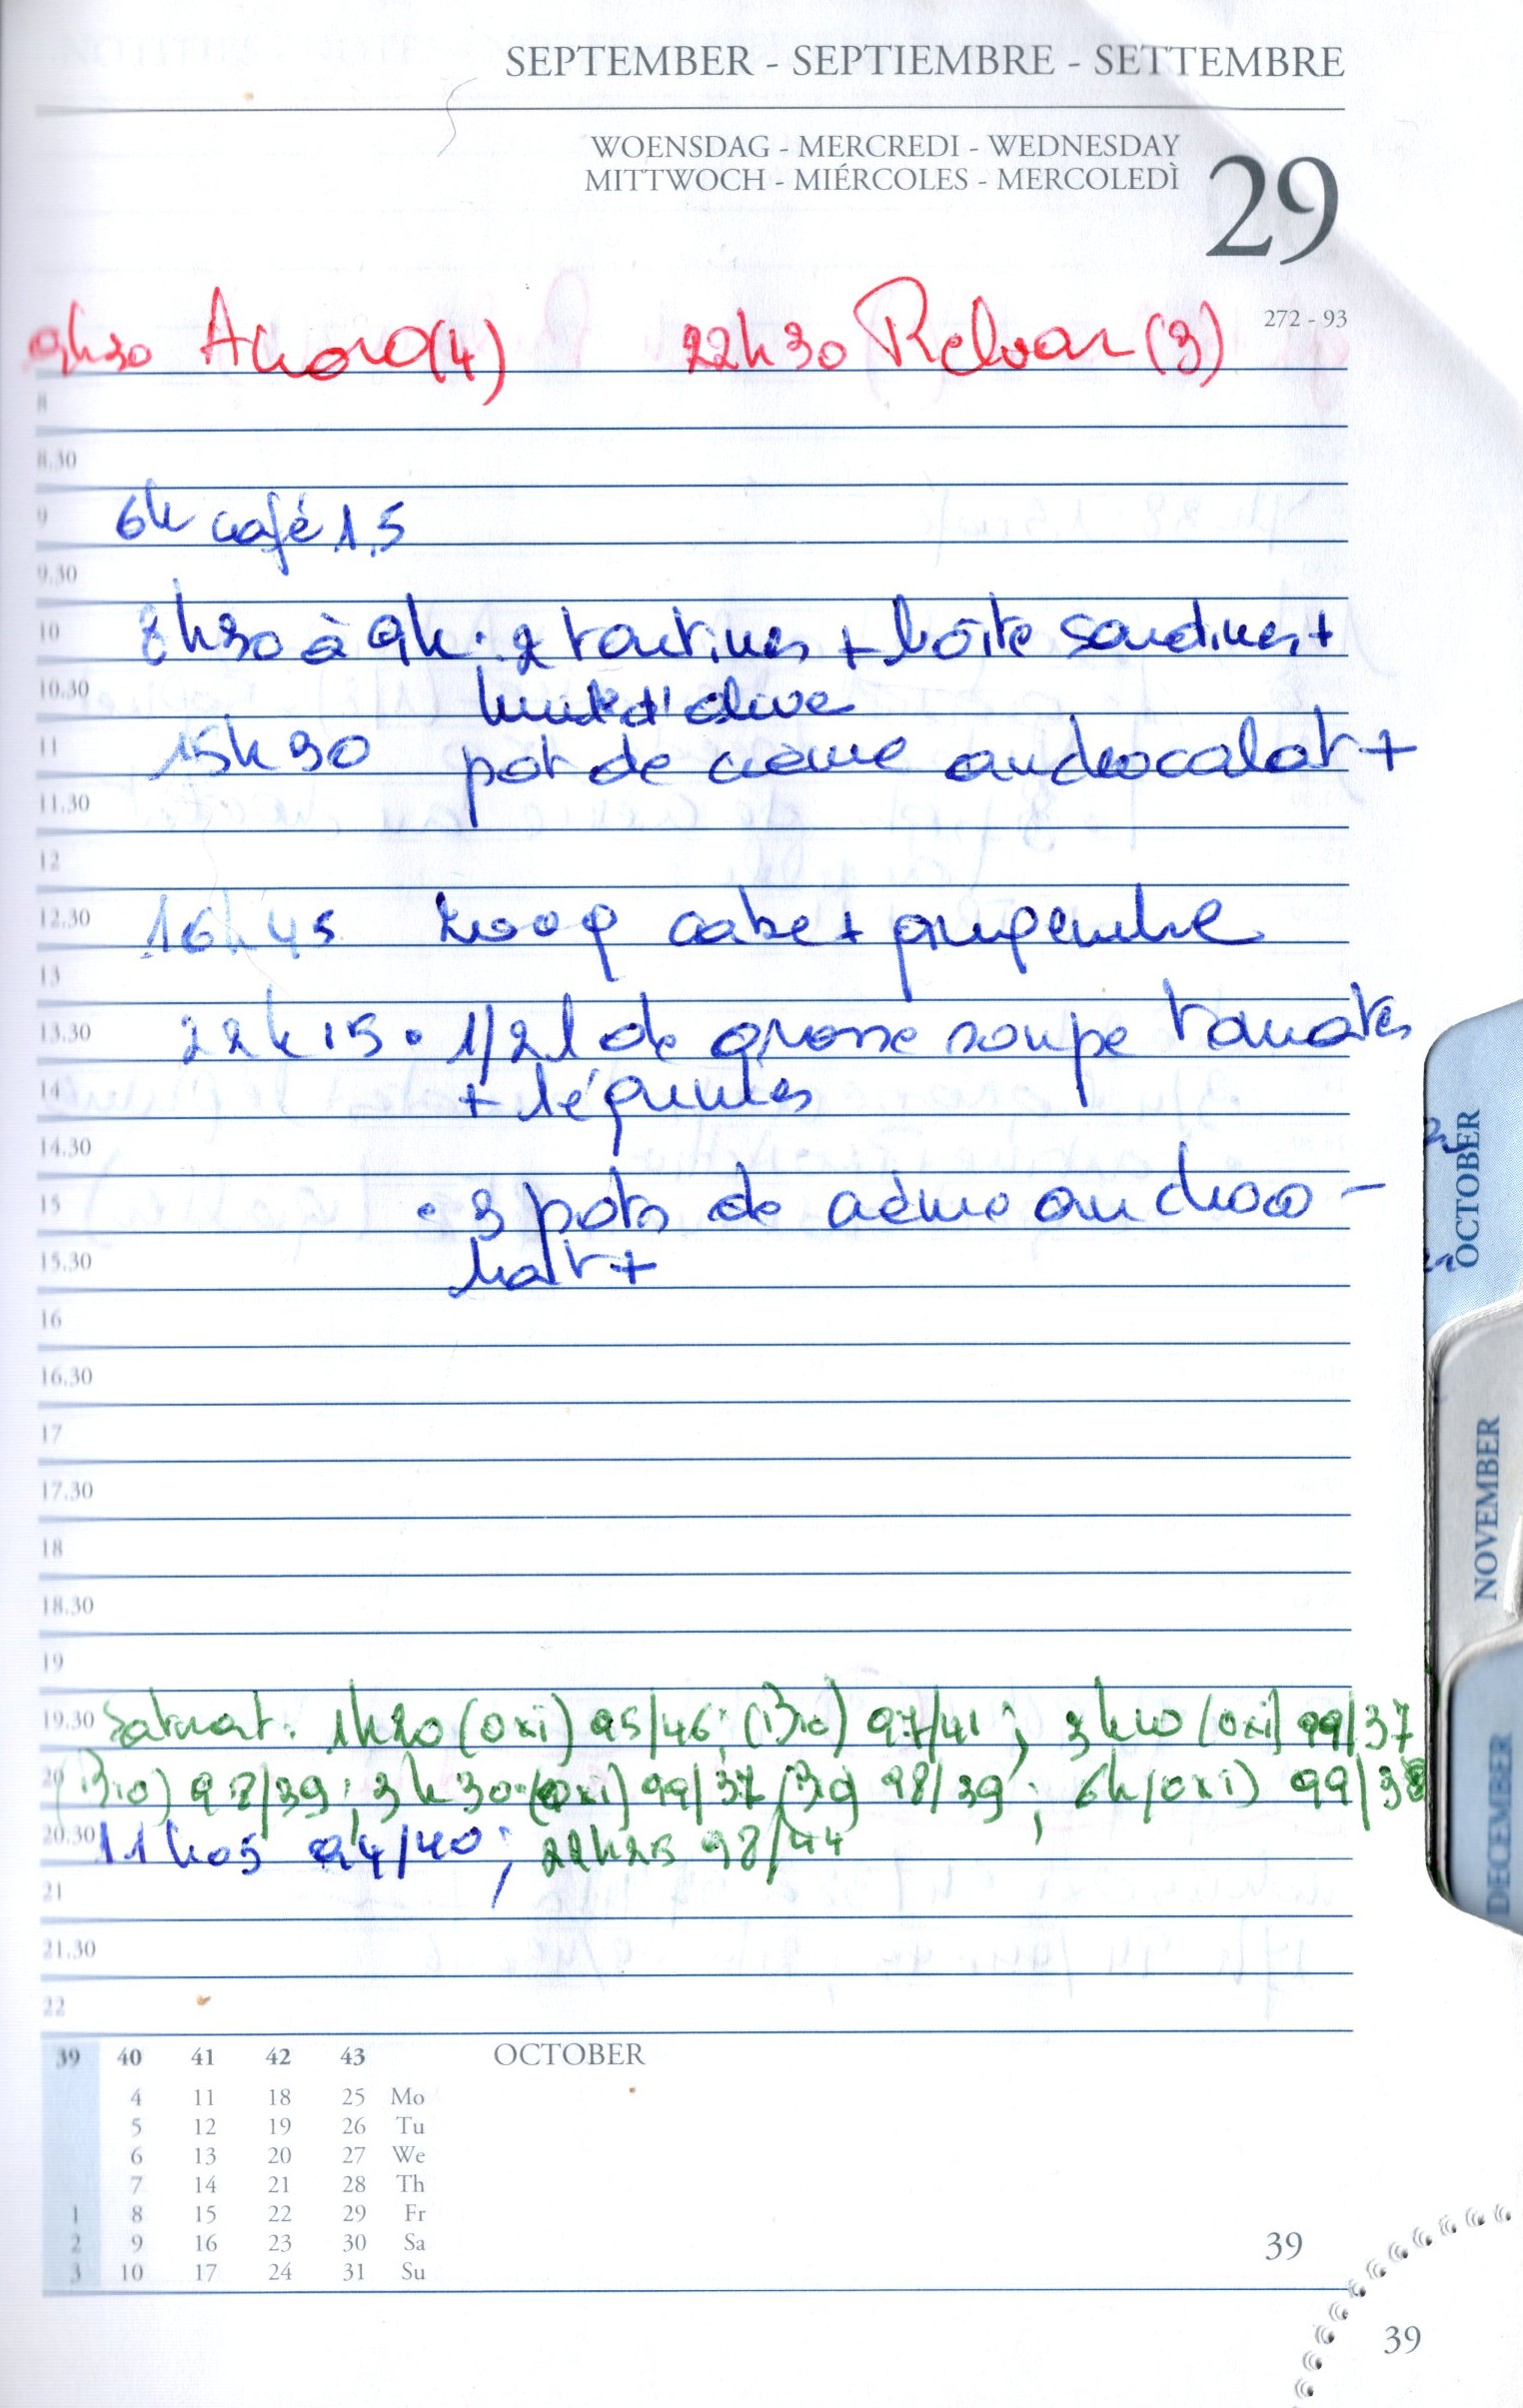 SEPTEMBER - SEPTIEMBRE - SETTEMBRE
WOENSDAG - MERCREDI - WEDNESDAY
MITTWOCH - MIÉRCOLES - MERCOLEDÌ
29
272 - 93
9h30 (4) 22h30 Relvar (3)
8
8.30
9
6h café 1,5
9.30
10
8h30 à 9h. 2 tartines + boîte sardines +
10.30
huile d'olive
11
15h30 pot de crème au chocolat +
11.30
12
12.30
16h45 200g cake + gingembre
13
13.30
22h15 • 1/2 l de grosse soupe tomates
14
+ légumes
14.30
15
• 3 pots de crème au choco -
15.30
lait +
16
16.30
17
17.30
18
18.30
19
19.30
Saturat. 1h20 (oxi) 95/46; (Bio) 97/41; 3h10 (oxi) 99/37
20
(Bio) 98/39; 3h30 (oxi) 99/37 (Bio) 98/39; 6h (oxi) 99/38
20.30
11h05 94/40; 22h25 98/44
21
21.30
22
39 40 41 42 43 OCTOBER
4 11 18 25 Mo
5 12 19 26 Tu
6 13 20 27 We
7 14 21 28 Th
1 8 15 22 29 Fr
2 9 16 23 30 Sa
3 10 17 24 31 Su
39
39
OCTOBER
NOVEMBER
DECEMBER